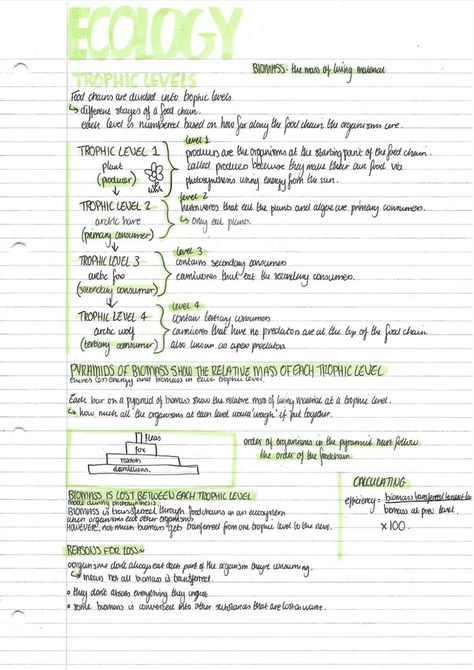 ECOLOGY
BIOMASS - the mass of living material
TROPHIC LEVELS
Food chains are divided into trophic levels.
↳ different stages of a food chain.
each level is numbered based on how far along the food chain the organisms are.
TROPHIC LEVEL 1
plant
(producer)
level 1
producers are the organisms at the starting point of the food chain.
called producers because they make their own food via
photosynthesis using energy from the sun.
TROPHIC LEVEL 2
arctic hare
(primary consumer)
level 2
herbivores that eat the plants and algae are primary consumers.
↳ only eat plants.
TROPHIC LEVEL 3
arctic fox
(secondary consumer)
level 3
contains secondary consumers
carnivores that eat the secondary consumers.
TROPHIC LEVEL 4
arctic wolf
(tertiary consumer)
level 4
contain tertiary consumers
carnivores that have no predators are at the top of the food chain
also known as apex predators
PYRAMIDS OF BIOMASS SHOW THE RELATIVE MASS OF EACH TROPHIC LEVEL
energy and biomass in each trophic level.
Each bar on a pyramid of biomass show the relative mass of living material at a trophic level.
↳ how much all the organisms at each level would 'weigh' if put together.
fleas
fox
rabbits
dandelions.
order of organisms in the pyramid must follow
the order of the foodchain.
CALCULATING
efficiency = biomass transferred to next level
biomass at prev. level
x 100
BIOMASS IS LOST BETWEEN EACH TROPHIC LEVEL
made during photosynthesis.
BIOMASS is transferred through food chains in an ecosystem
when organisms eat other organisms
HOWEVER, not much biomass gets transferred from one trophic level to the next.
REASONS FOR LOSS~
organisms don't always eat each part of the organism they're consuming.
↳ means not all biomass is transferred.
• they don't absorb everything they ingest
• some biomass is converted into other substances that are lost as waste.